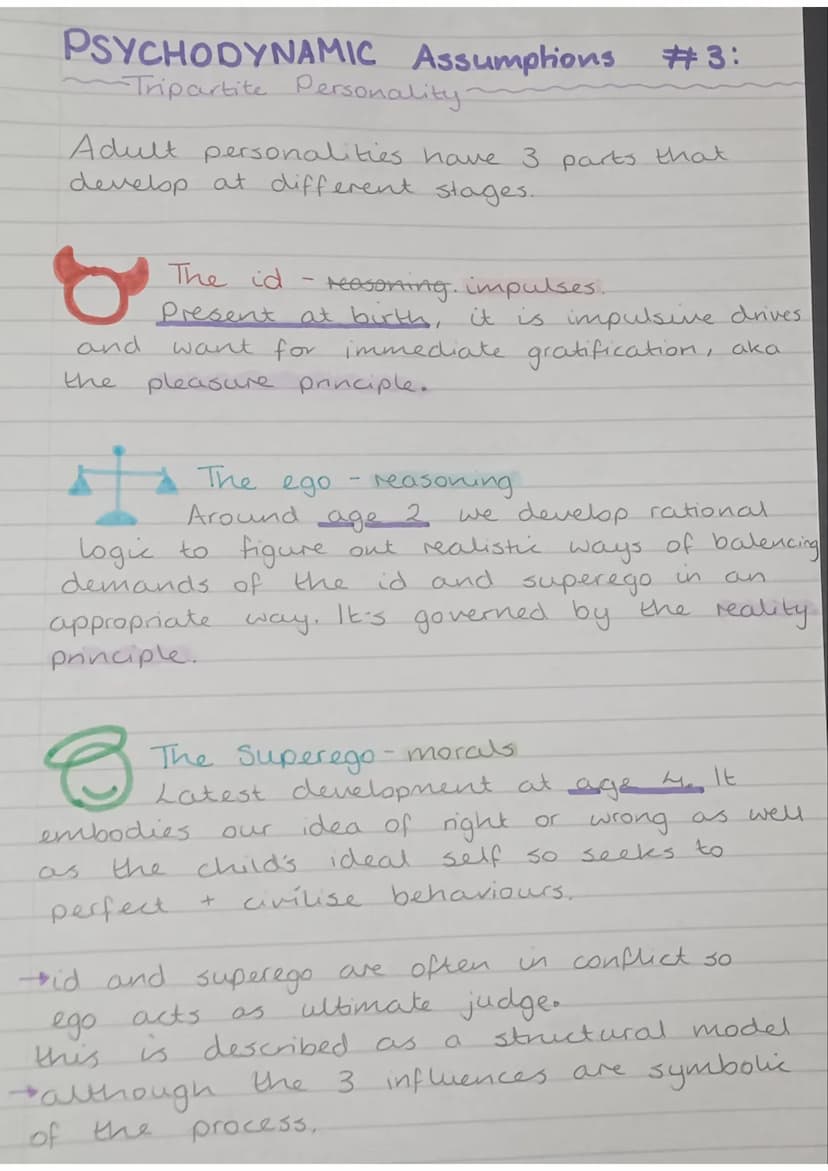 PSYCHODYNAMIC Assumptions #3:
Tripartite Personality
Adult personalities have 3 parts that
develop at different stages.
The id - reasoning. impulses.
Present at birth, it is impulsive drives
and want for immediate gratification, aka
the pleasure principle.
The ego - reasoning
Around age 2 we develop rational
logic to figure out realistic ways of balencing
demands of the id and superego in an
appropriate way. It's governed by the reality
principle.
The Superego - morals
Latest development at age 4. It
embodies our idea of right or wrong as well
as the child's ideal self so seeks to
perfect + civilise behaviours.
→id and superego are often in conflict so
ego acts as ultimate judge.
this is described as a structural model
→although the 3 influences are symbolic
of the process.